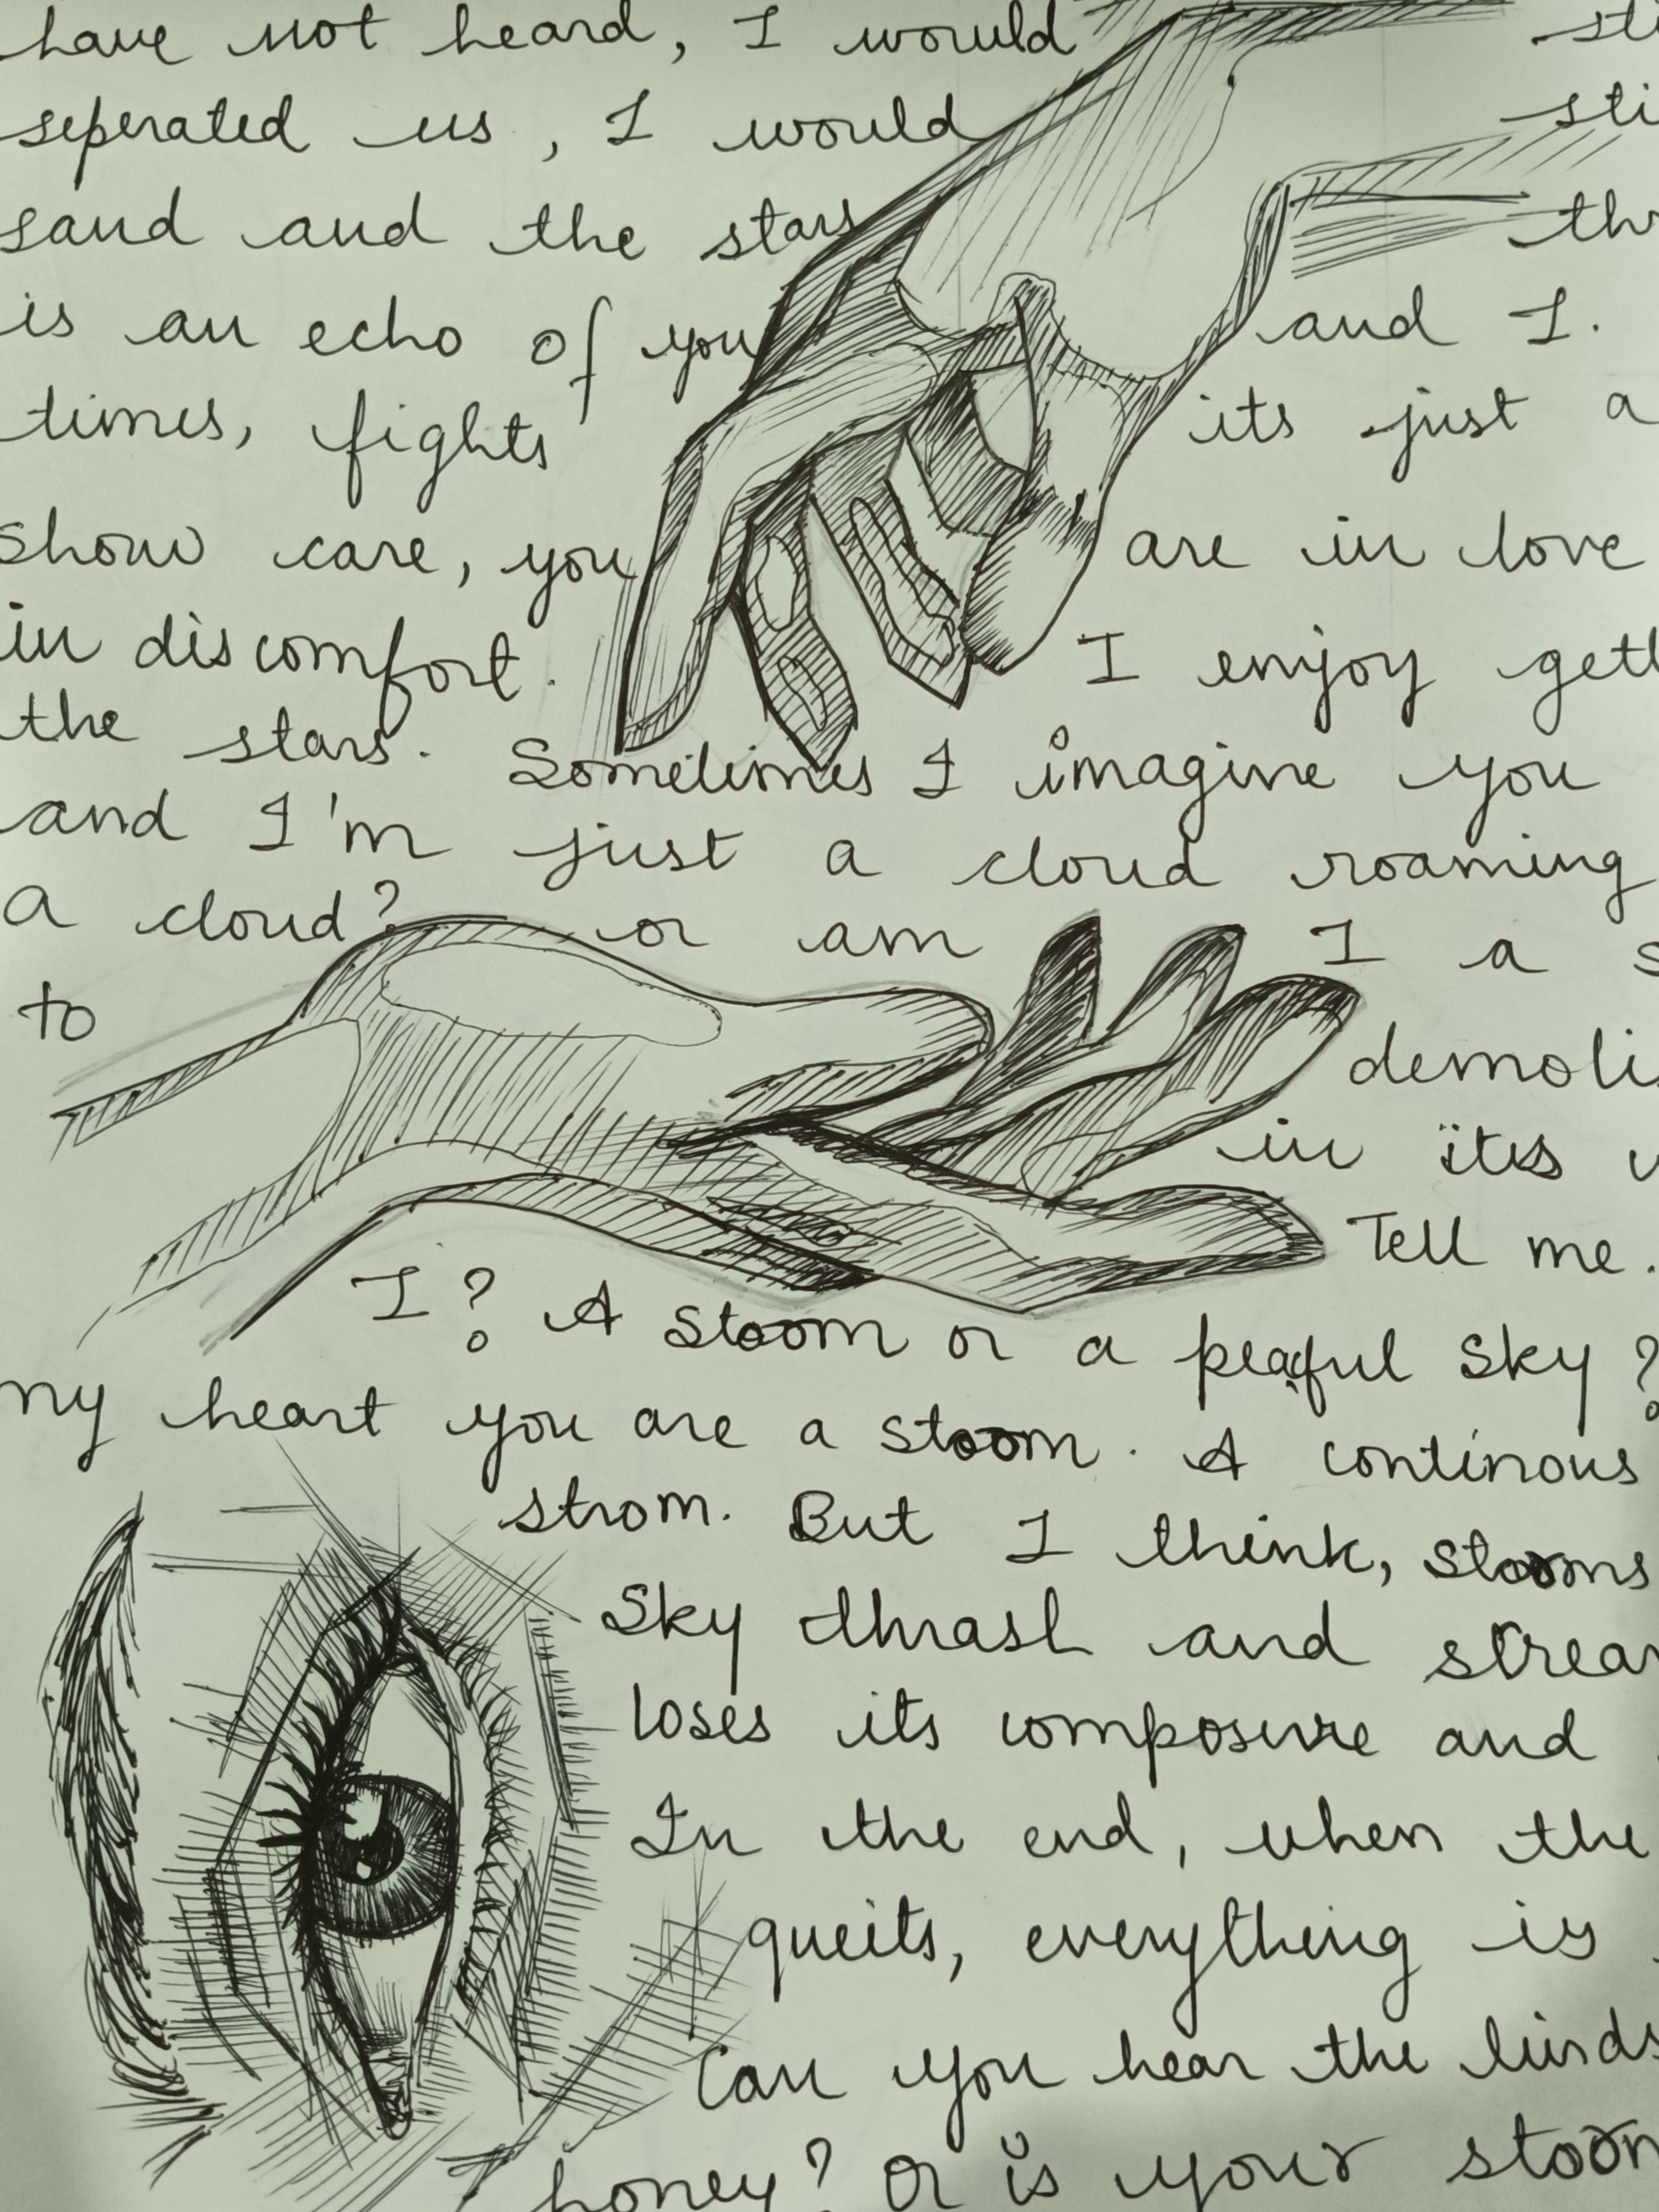 have not heard, I would
seperated us, I would
sand and the stars
is an echo of you and I.
times, fights its just a
show care, you are in love
in discomfort. I enjoy
the stars. Sometimes I imagine you
and I'm just a cloud roaming
a cloud? or am I a
to
in its
Tell me.
I? A stoom or a peaful sky?
my heart you are a stoom. A continous
strom. But I think, stooms
sky thrash and
loses its composure and
In the end, when the
queits, everything is
Can you hear the
honey? Or is your